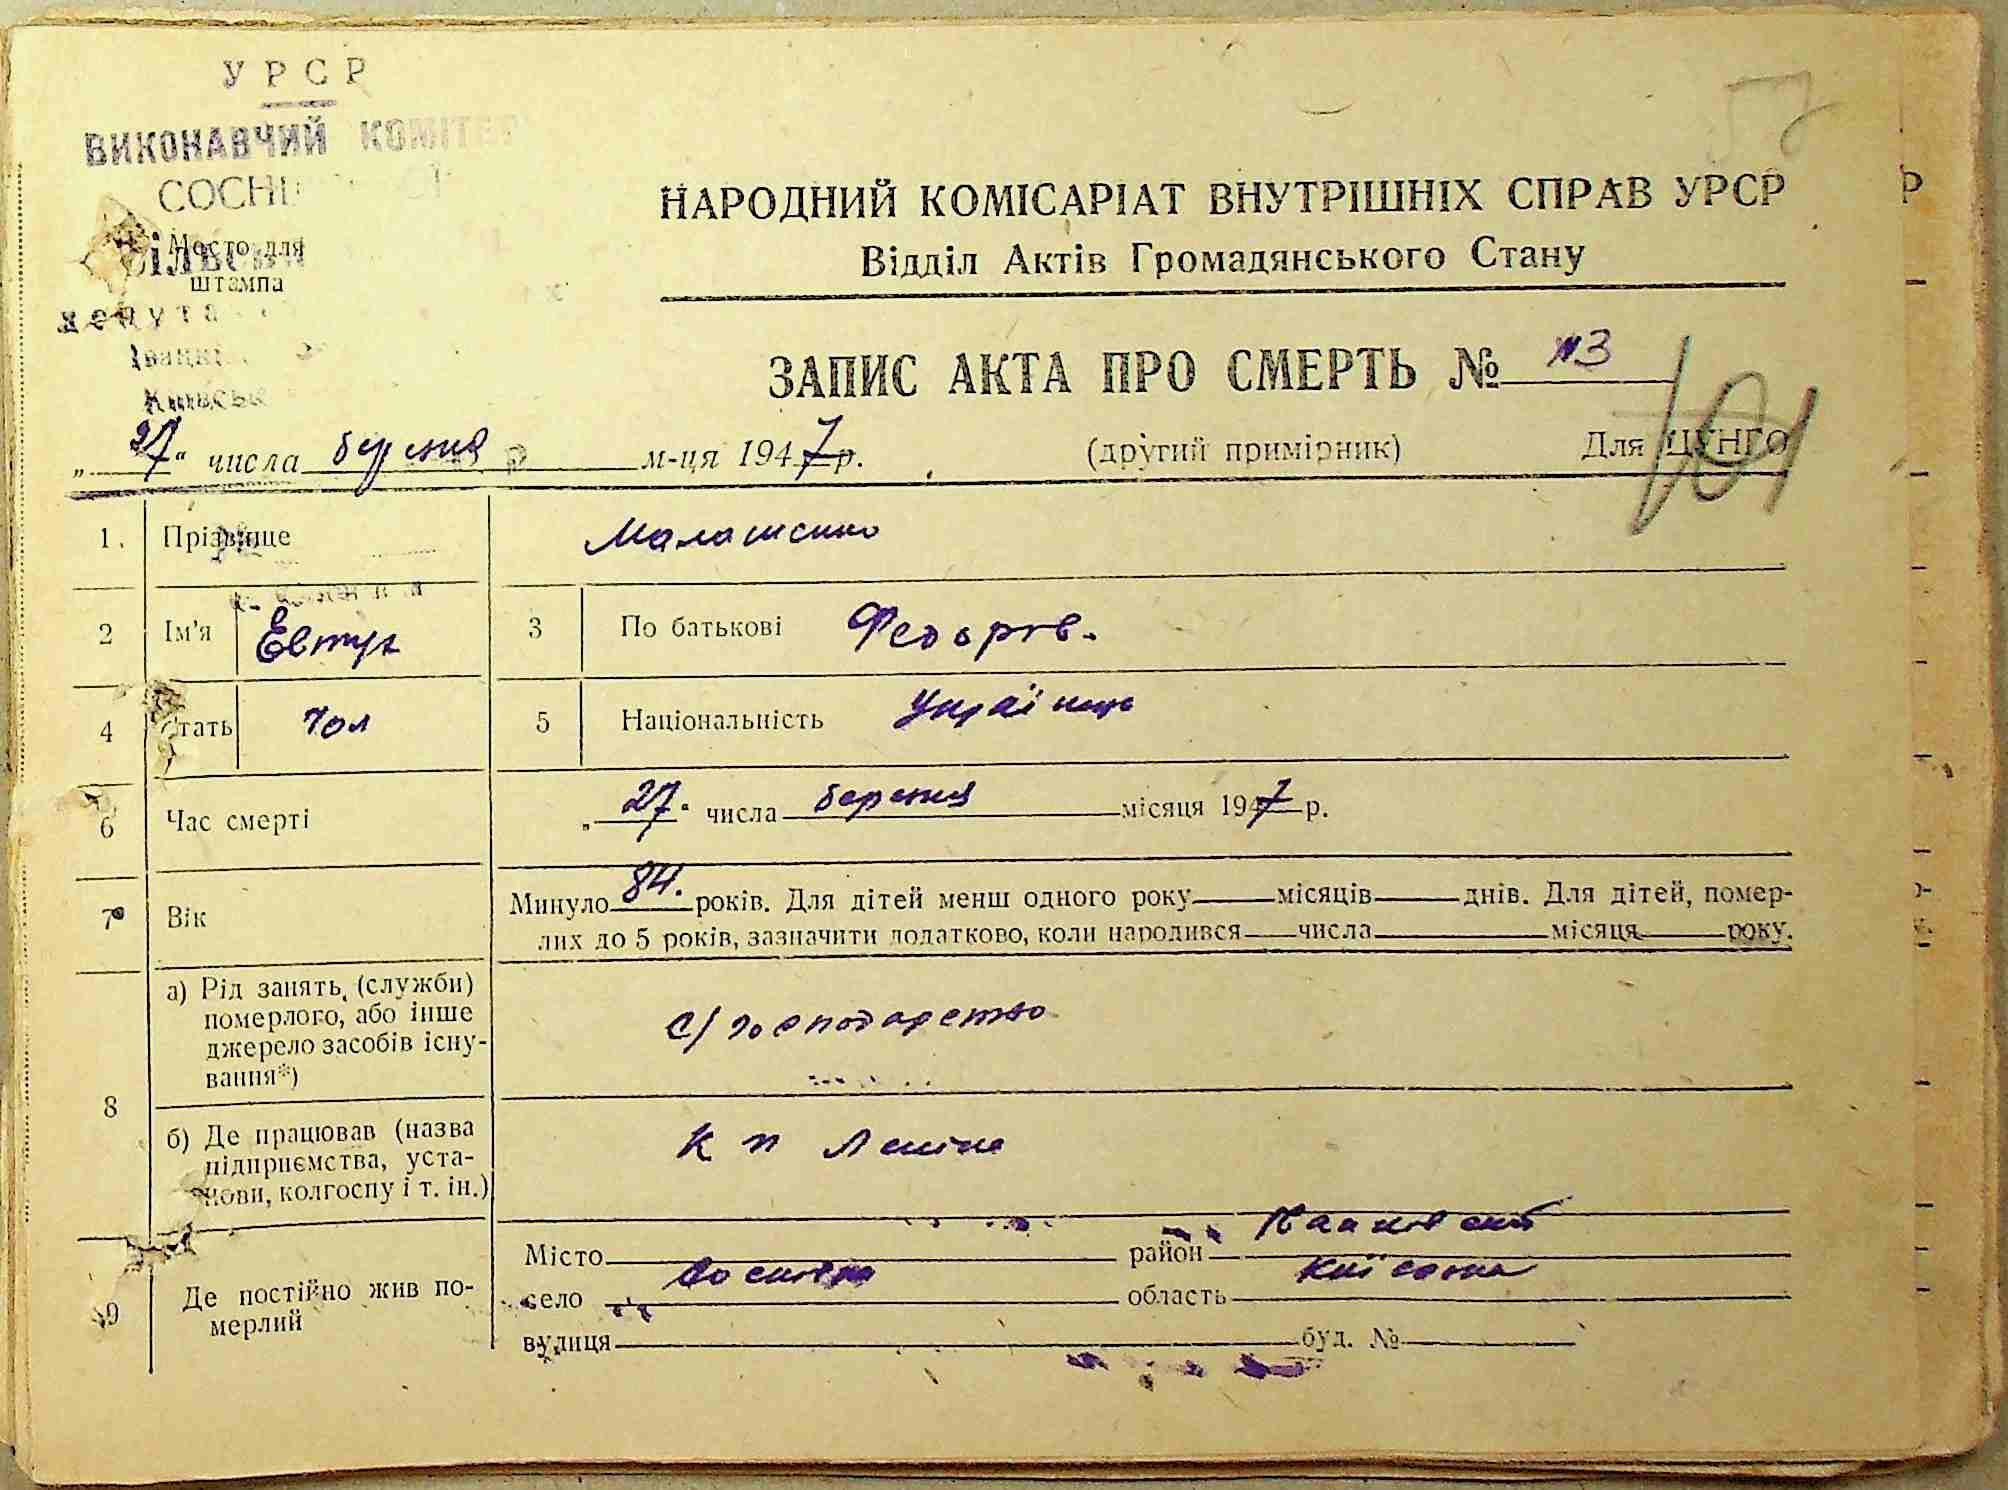 УРСР
ВИКОНАВЧИЙ КОМІТЕТ
Место для
штампа
НАРОДНИЙ КОМІСАРІАТ ВНУТРІШНІХ СПРАВ УРСР
Відділ Актів Громадянського Стану
ЗАПИС АКТА ПРО СМЕРТЬ № 13
„27“ числа березня м-ця 1947 р. (другий примірник) Для ЦУНГО
101
1. Прізвище Малашенко
2 Ім'я Евтух 3 По батькові Федоров.
4 Стать чол 5 Національність Українець
6 Час смерті „27“ числа березня місяця 1947 р.
7 Вік Минуло 84. років. Для дітей менш одного року місяців днів. Для дітей, помер-
лих до 5 років, зазначити додатково, коли народився числа місяця року.
8 а) Рід занять (служби)
померлого, або інше
джерело засобів існу-
вання*)
с/господарство
б) Де працював (назва
підприємства, уста-
нови, колгоспу і т. ін.)
К п Леніна
9 Де постійно жив по-
мерлий
Місто район
село Соснівка область Київська
вулиця буд. №